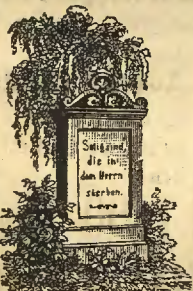 Selig sind,
die in
dem Herrn
sterben.